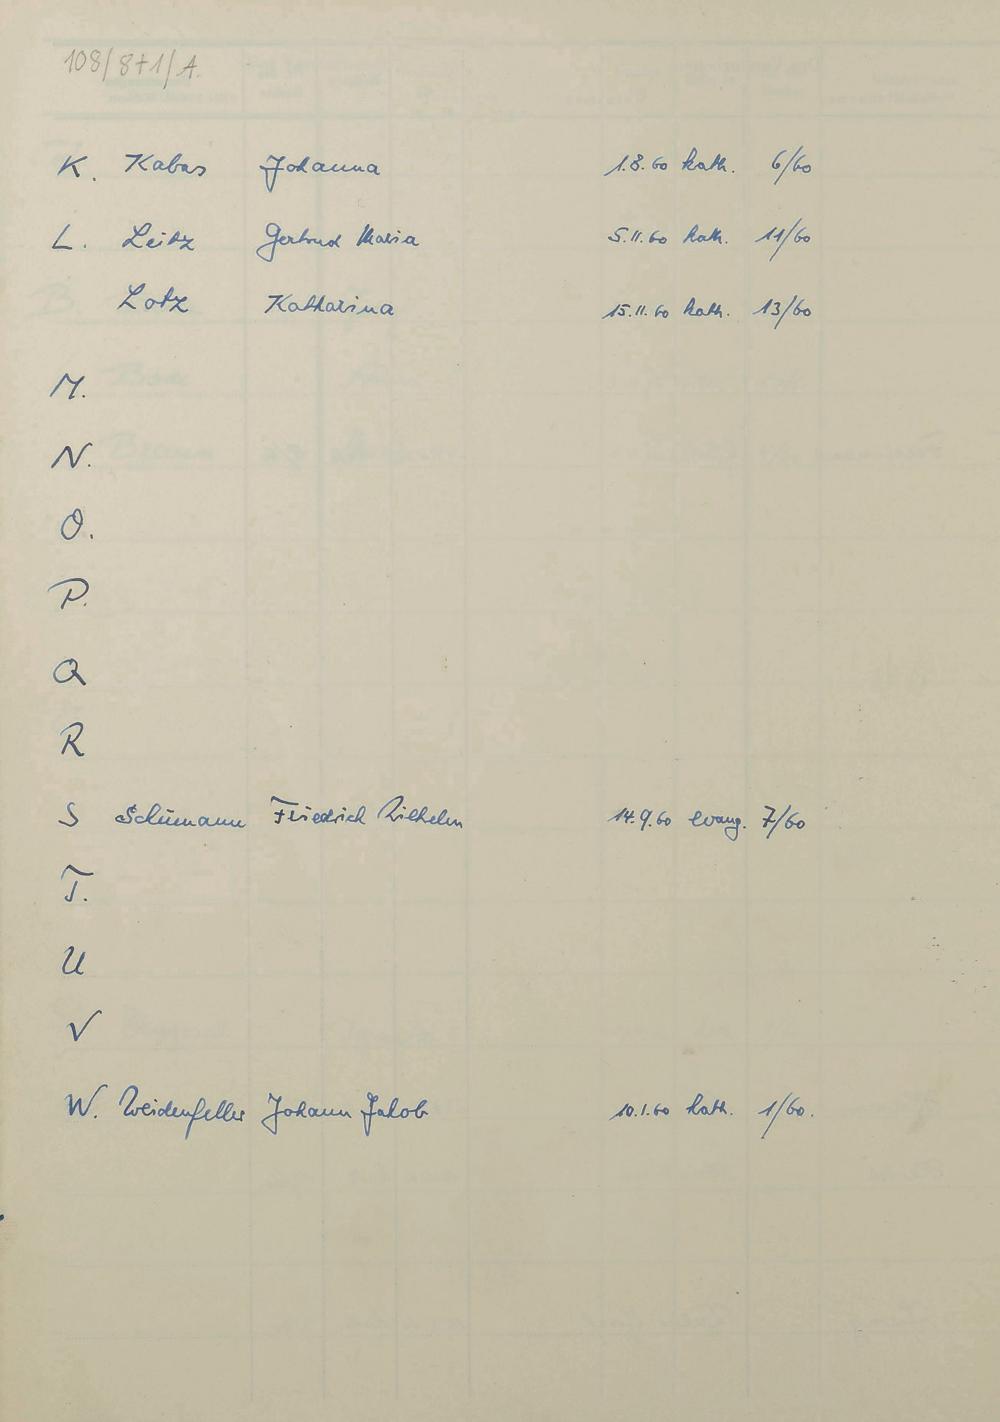 108/8+1/A.
K. Kabas Johanna 1.8.60 kath. 6/60
L. Leitz Gertrud Maria 5.11.60 kath. 11/60
Lotz Katharina 15.11.60 kath. 13/60
M.
N.
O.
P.
Q
R
S Schümann Friedrich Wilhelm 14.9.60 evang. 7/60
T.
U
V
W. Weidenfeller Johann Jakob 10.1.60 kath. 1/60.